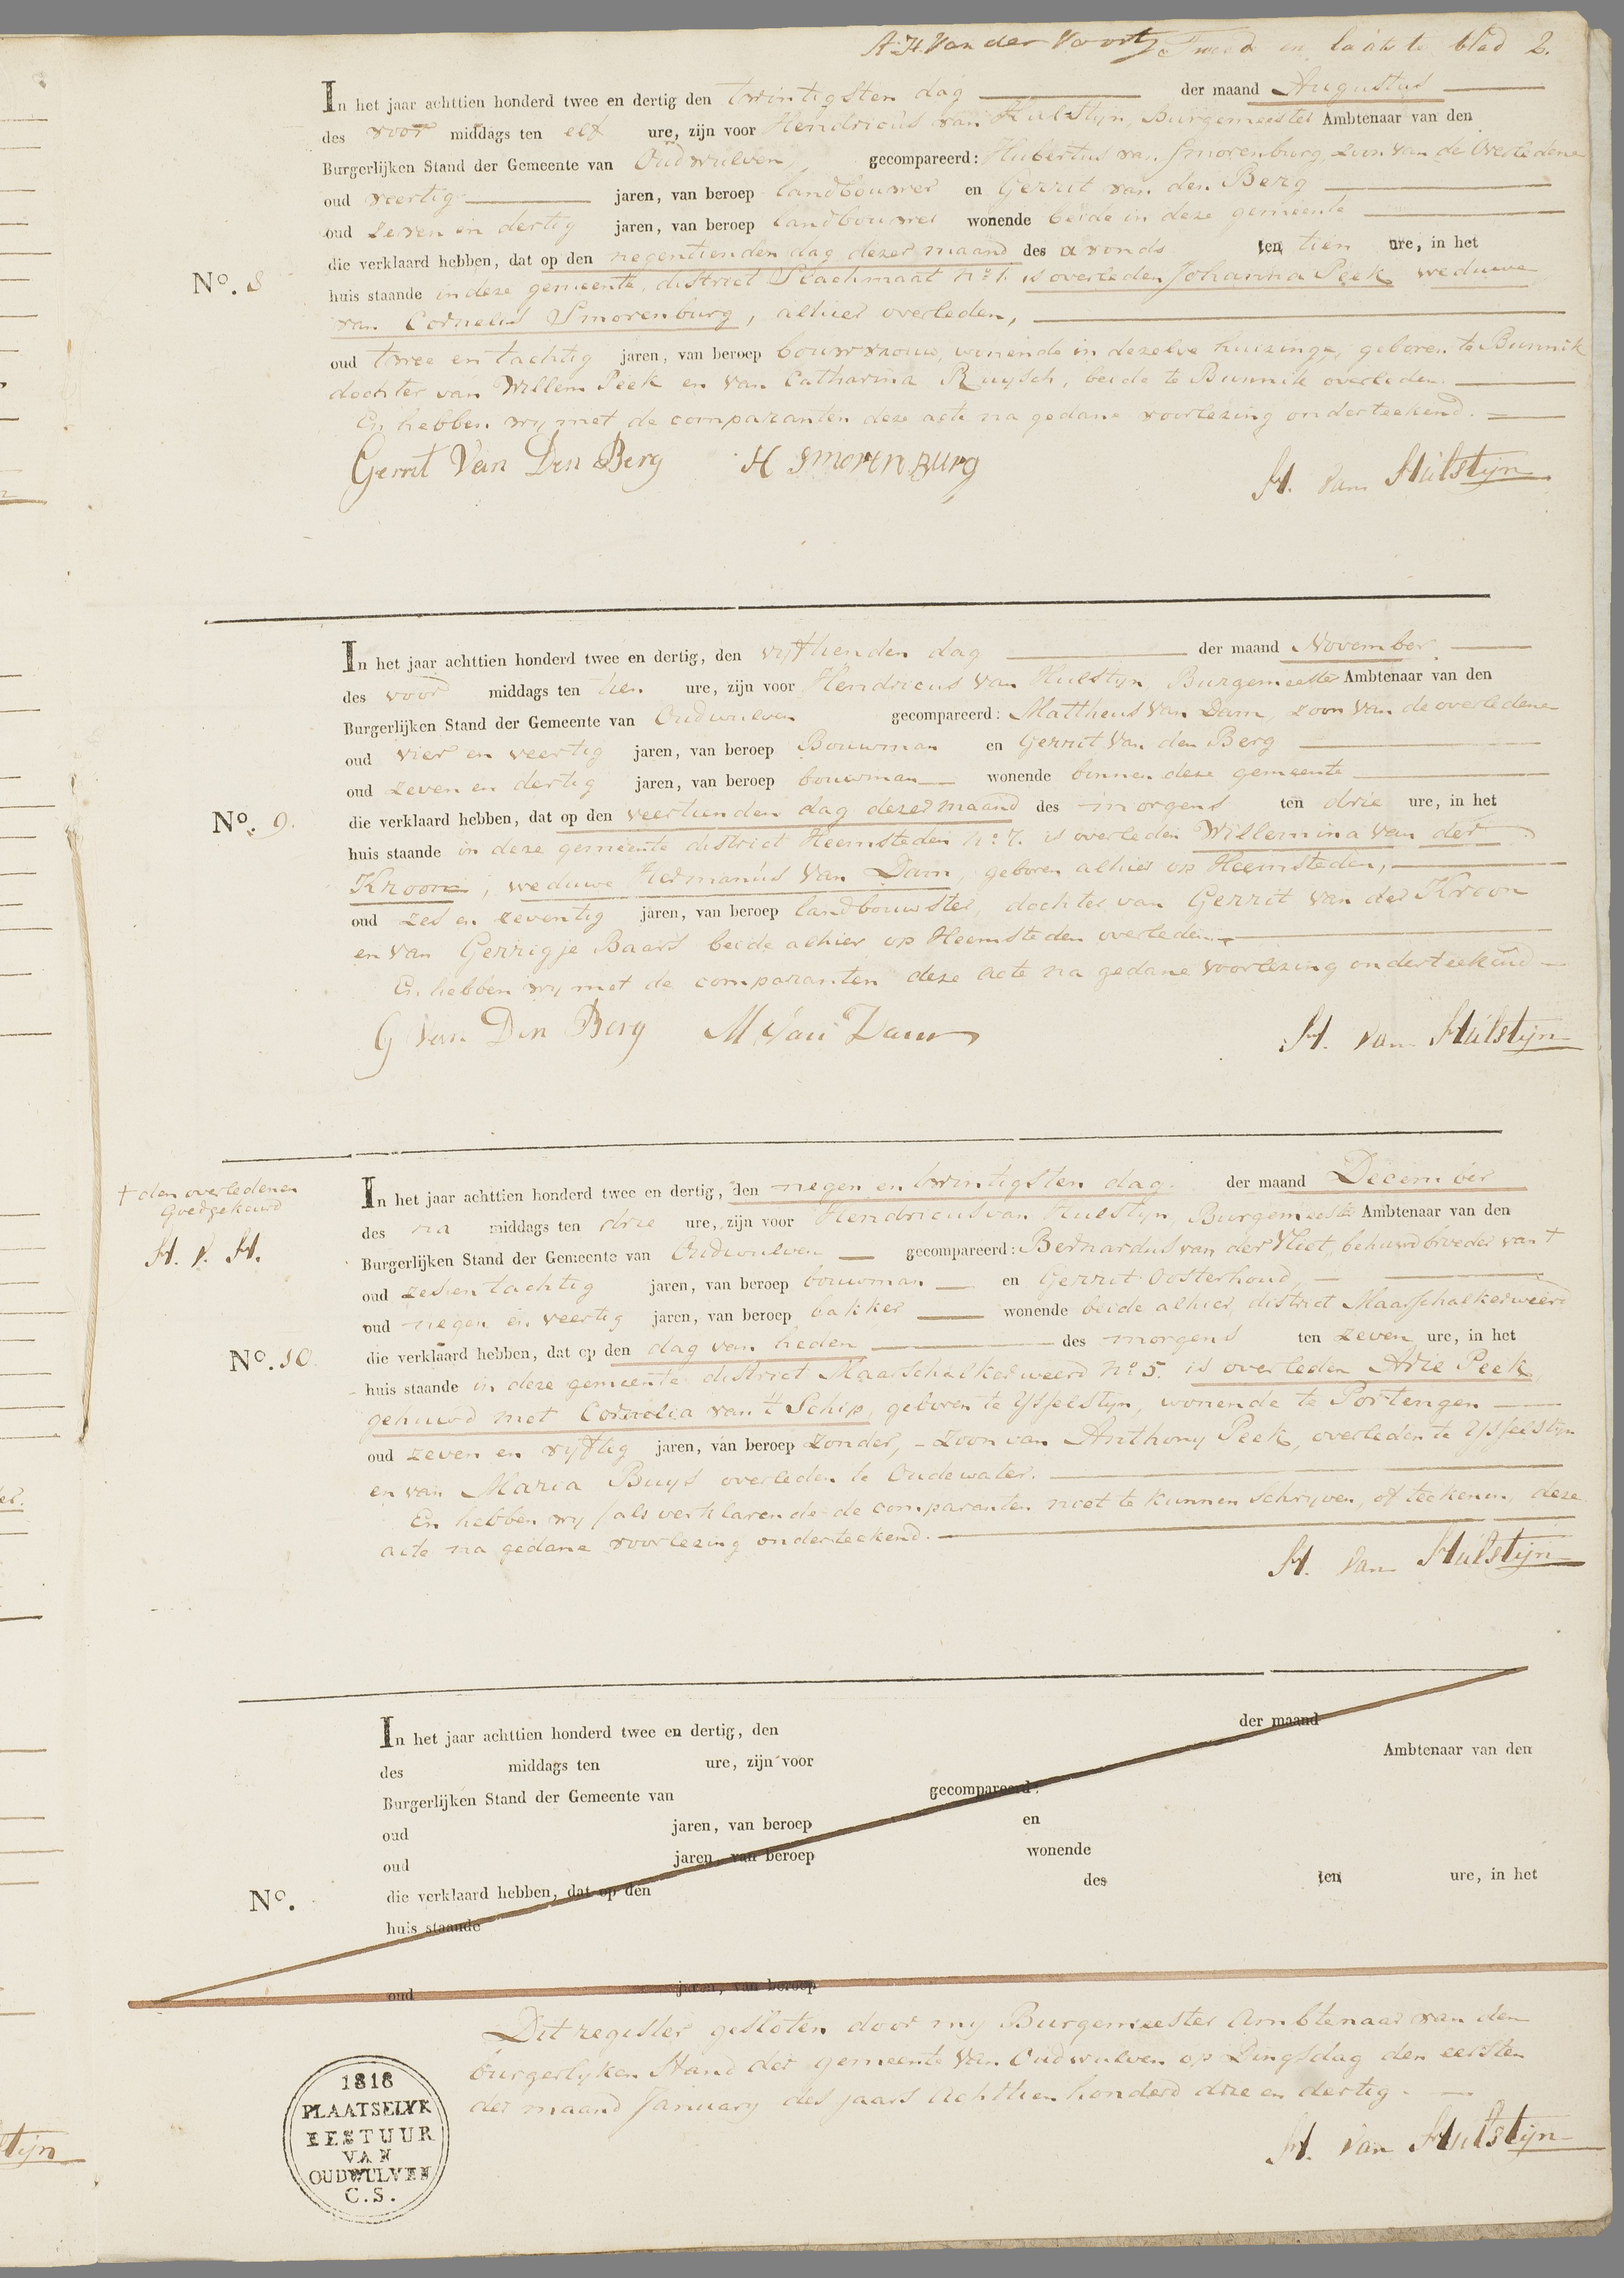 A: H. Van der Voort Tweede en laatste blad 2.
In het jaar achttien honderd twee en dertig den twintigsten dag der maand Augustus
des voor middags ten elf ure, zijn voor Hendricus van Hulstijn, Burgemeester Ambtenaar van den
Burgerlijken Stand der Gemeente van Oudwulven, gecompareerd: Hubertus van Smorenburg, zoon van de Overledene
oud veertig jaren, van beroep landbouwer en Gerrit van den Berg
oud zeven en dertig jaren, van beroep landbouwer wonende beide in deze gemeente
die verklaard hebben, dat op den negentienden dag dezer maand des avonds ten tien ure, in het
No. 8
huis staande in deze gemeente, district Slachmaat No. 1. is overleden Johanna Peek weduwe
van Cornelis Smorenburg, alhier overleden,
oud twee en tachtig jaren, van beroep bouwvrouw, wonende in dezelve huizinge, geboren te Bunnik
dochter van Willem Peek en van Catharina Ruysch, beide te Bunnik overleden.
En hebben wy met de comparanten deze acte na gedane voorlezing onderteekend.
Gerrit Van Den Berg H Smorenburg H. van Hulstijn
In het jaar achttien honderd twee en dertig, den vyfthienden dag der maand November
des voor middags ten tien ure, zijn voor Hendricus van Hulstyn, Burgemeester Ambtenaar van den
Burgerlijken Stand der Gemeente van Oudwulven gecompareerd: Mattheus van Dam, zoon van de overledene
oud vier en veertig jaren, van beroep Bouwman en Gerrit Van den Berg
oud zeven en dertig jaren, van beroep bouwman wonende binnen deze gemeente
No. 9.
die verklaard hebben, dat op den veertienden dag dezer maand des morgens ten drie ure, in het
huis staande in deze gemeente district Heemsteden No. 7. is overleden Willemina van der
Kroon, weduwe Hermanus Van Dam, geboren alhier op Heemsteden,
oud zes en zeventig jaren, van beroep landbouwster, dochter van Gerrit van der Kroon
en van Gerrigje Baars beide alhier op Heemsteden overleden.
En hebben wy met de comparanten deze acte na gedane voorlezing onderteekend
G Van Den Berg M van Dam H. van Hulstijn
† den overledenen
Goedgekeurd
H. v. H.
In het jaar achttien honderd twee en dertig, den negen en twintigsten dag der maand December
des na middags ten drie ure, zijn voor Hendricus van Hulstyn, Burgemeester Ambtenaar van den
Burgerlijken Stand der Gemeente van Oudwulven gecompareerd: Bernardus van der Vliet, behuwdbroeder van †
oud zes en tachtig jaren, van beroep bouwman en Gerrit Oosterhoud,
oud negen en veertig jaren, van beroep bakker wonende beide alhier, district Maarschalkerweerd
No. 10.
die verklaard hebben, dat op den dag van heden des morgens ten zeven ure, in het
huis staande in deze gemeente district Maarschalkerweerd No. 5. is overleden Arie Peek,
gehuwd met Cornelia van 't Schip, geboren te Ysselstyn, wonende te Portengen
oud zeven en vyftig jaren, van beroep zonder, - zoon van Anthony Peek, overleden te Ysselstyn
en van Maria Buys overleden te Oudewater.
En hebben wy /als verklarende de comparanten niet te kunnen schryven, of teekenen, deze
acte na gedane voorlezing onderteekend.
H. van Hulstijn
In het jaar achttien honderd twee en dertig, den der maand
des middags ten ure, zijn voor Ambtenaar van den
Burgerlijken Stand der Gemeente van gecompareerd:
oud jaren, van beroep en
oud jaren, van beroep wonende
No.
die verklaard hebben, dat op den des ten ure, in het
huis staande
oud jaren, van beroep
Dit register gesloten door my Burgemeester Ambtenaar van den
burgerlyken Stand der gemeente van Oudwulven op Dingsdag den eersten
der maand January des jaars Achttien honderd drie en dertig.
H. van Hulstijn
1818
PLAATSELYK
BESTUUR
VAN
OUDWULVEN
C.S.